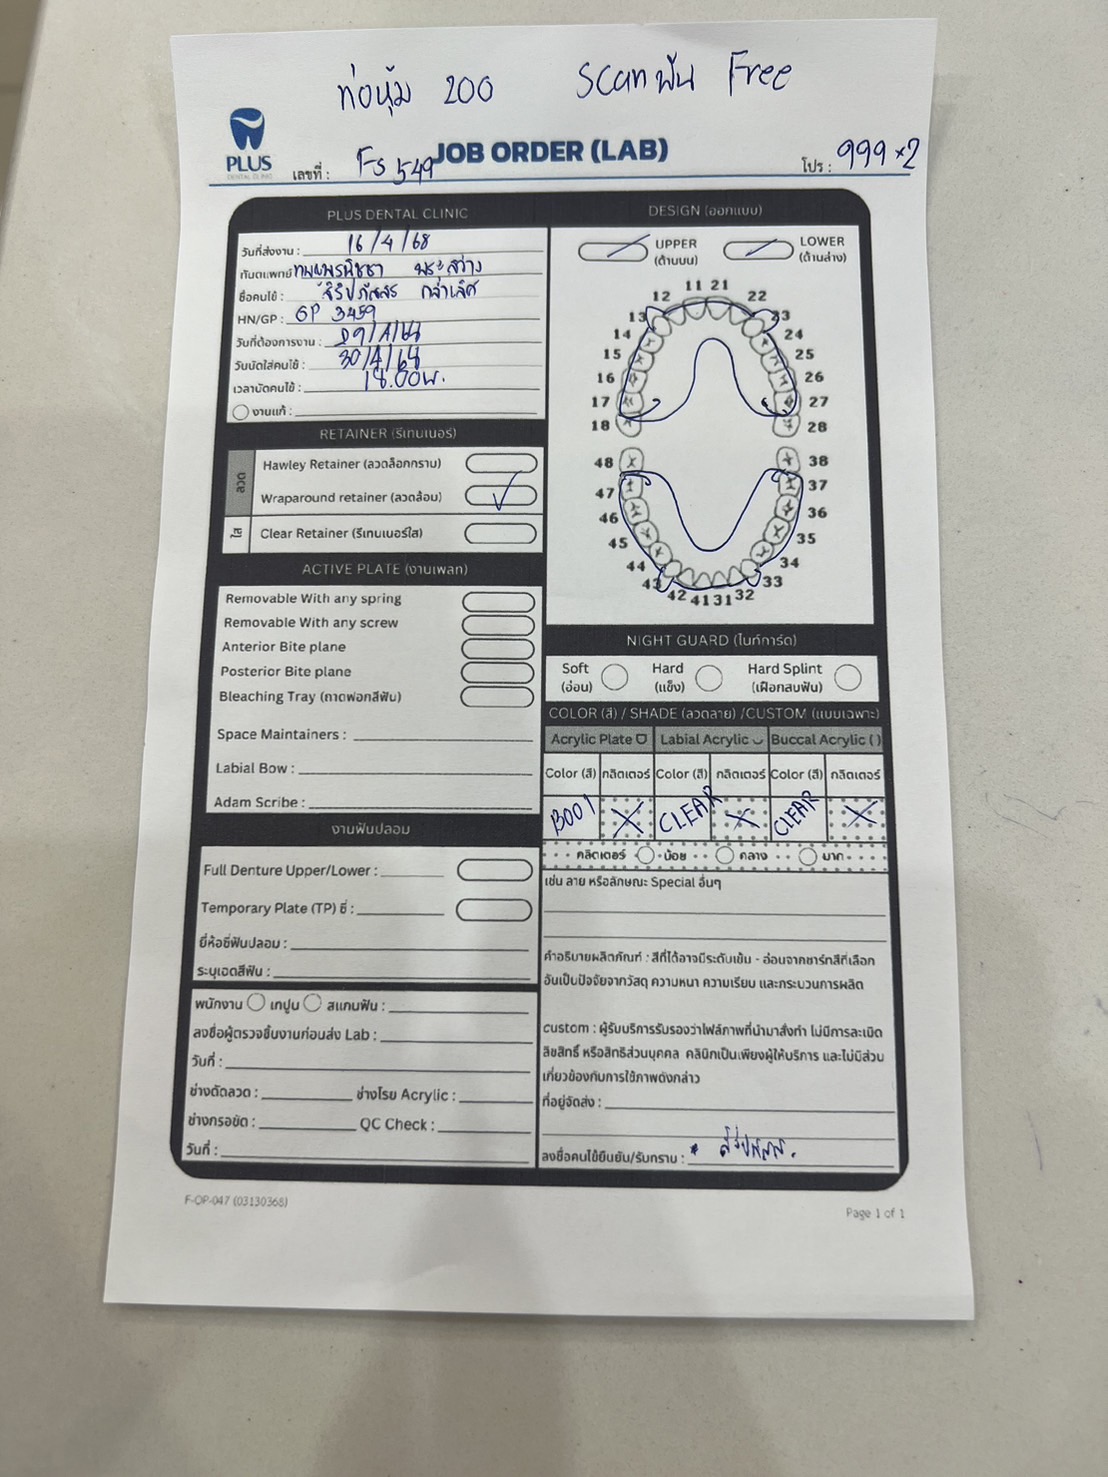 ท่อหุ้ม 200 Scanฟัน Free
PLUS
DENTAL CLINIC
เลขที่ : Fs 549
JOB ORDER (LAB)
โปร : 999 x 2
PLUS DENTAL CLINIC
วันที่ส่งงาน : 16/4/68
ทันตแพทย์
ชื่อคนไข้ :
HN/GP : GP 3459
วันที่ต้องการงาน : 29/4/68
วันนัดใส่คนไข้ : 30/4/68
เวลานัดคนไข้ : 18.00น.
งานแก้ :
RETAINER (รีเทนเนอร์)
ลวด
Hawley Retainer (ลวดล็อกกราม)
Wraparound retainer (ลวดล้อม) ✓
ใส
Clear Retainer (รีเทนเนอร์ใส)
ACTIVE PLATE (งานเพลท)
Removable With any spring
Removable With any screw
Anterior Bite plane
Posterior Bite plane
Bleaching Tray (ถาดฟอกสีฟัน)
Space Maintainers :
Labial Bow :
Adam Scribe :
งานฟันปลอม
Full Denture Upper/Lower :
Temporary Plate (TP) ซี่ :
ยี่ห้อซี่ฟันปลอม :
ระบุเฉดสีฟัน :
พนักงาน เทปูน สแกนฟัน :
ลงชื่อผู้ตรวจชิ้นงานก่อนส่ง Lab :
วันที่ :
ช่างดัดลวด : ช่างโรย Acrylic :
ช่างกรอขัด : QC Check :
วันที่ :
DESIGN (ออกแบบ)
UPPER
(ด้านบน)
LOWER
(ด้านล่าง)
11 21
12 22
13 23
14 24
15 25
16 26
17 27
18 28
48 38
47 37
46 36
45 35
44 34
43 33
42 41 31 32
NIGHT GUARD (ไนท์การ์ด)
Soft
(อ่อน)
Hard
(แข็ง)
Hard Splint
(เฝือกสบฟัน)
COLOR (สี) / SHADE (ลวดลาย) /CUSTOM (แบบเฉพาะ)
Acrylic Plate Labial Acrylic Buccal Acrylic ( )
Color (สี) กลิตเตอร์ Color (สี) กลิตเตอร์ Color (สี) กลิตเตอร์
B001 X CLEAR X CLEAR X
กลิตเตอร์ น้อย กลาง มาก
เช่น ลาย หรือลักษณะ Special อื่นๆ
คำอธิบายผลิตภัณฑ์ : สีที่ได้อาจมีระดับเข้ม - อ่อนจากชาร์ทสีที่เลือก
อันเป็นปัจจัยจากวัสดุ ความหนา ความเรียบ และกระบวนการผลิต
custom : ผู้รับบริการรับรองว่าไฟล์ภาพที่นำมาสั่งทำ ไม่มีการละเมิด
ลิขสิทธิ์ หรือสิทธิส่วนบุคคล คลินิกเป็นเพียงผู้ให้บริการ และไม่มีส่วน
เกี่ยวข้องกับการใช้ภาพดังกล่าว
ที่อยู่จัดส่ง :
ลงชื่อคนไข้ยืนยัน/รับทราบ :
F-OP-047 (03130368)
Page 1 of 1